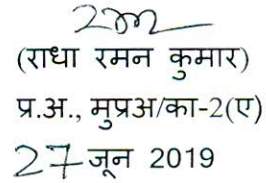 (राधा रमन कुमार)
प्र.अ., मुप्रअ/का-2(ए)
27 जून 2019